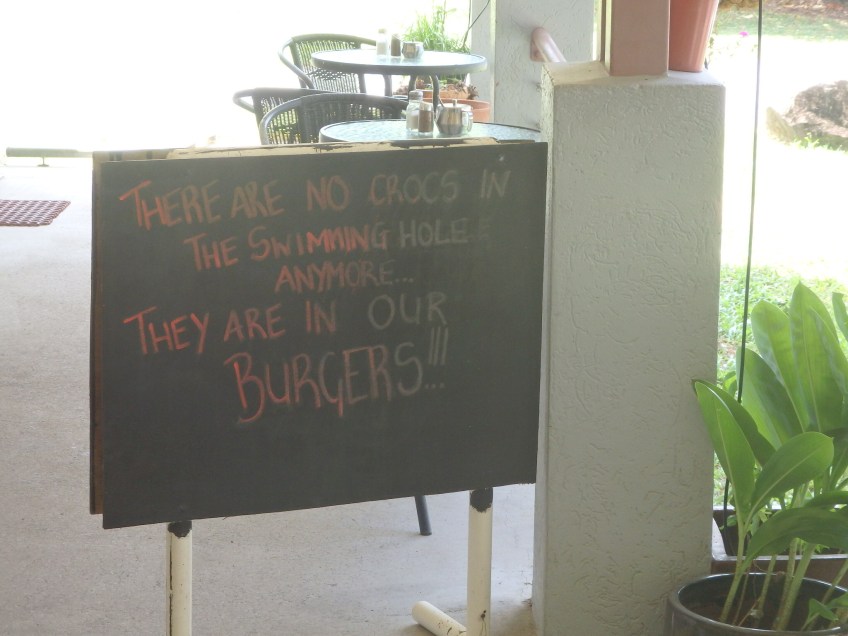 THERE ARE NO CROCS IN
THE SWIMMING HOLE..
ANYMORE...
THEY ARE IN OUR
BURGERS!!!